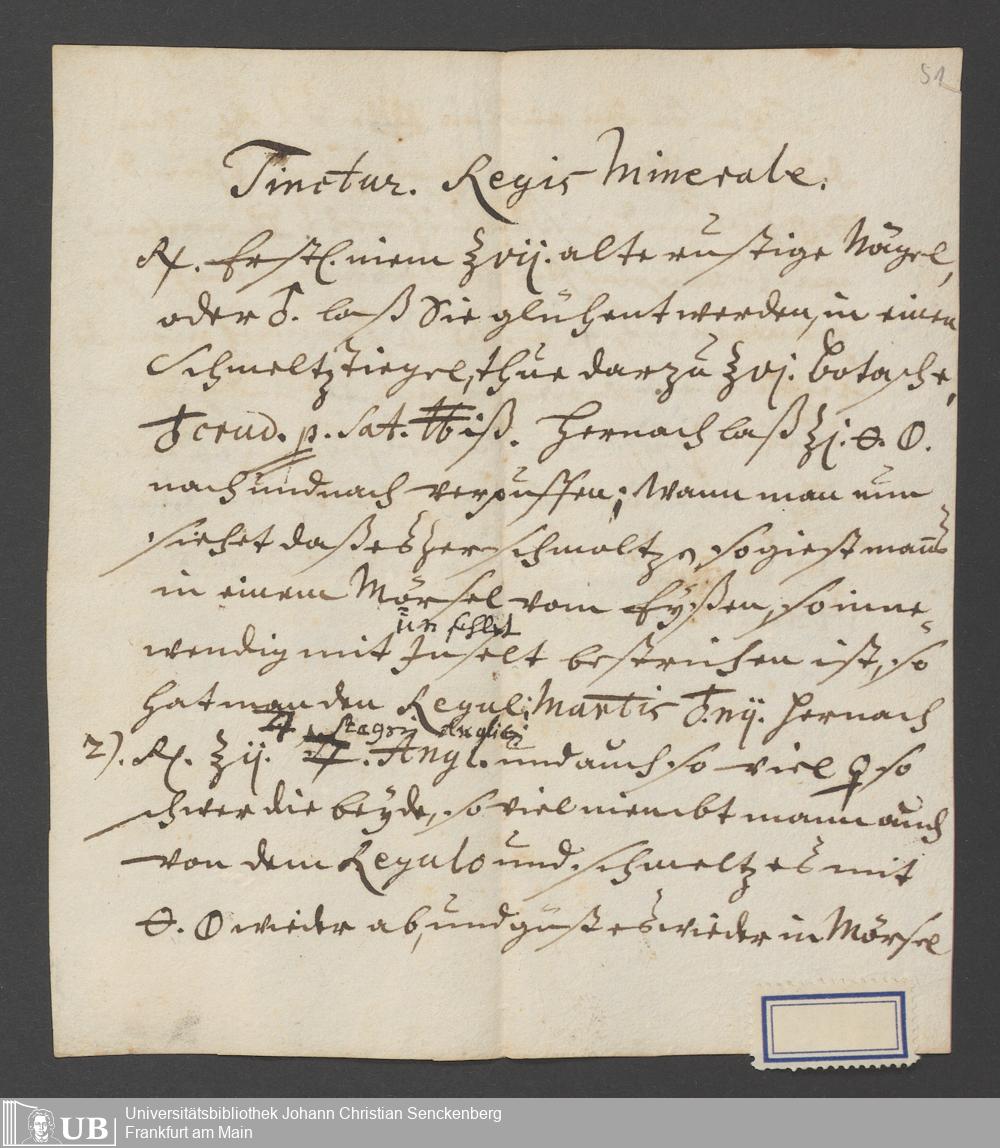 51
Tinctur. Regis Minerale.
Rx. Erstl. niem ℥vij. alte rustige Nägel,
oder ♁. laß Sie glühent werden, in einen
Schmeltztiegel, thue darzu ℥vj. Botasche,
♁ crud. p. Sat. ℔iß. Hernach laß ℥j. S. O.
nach und nach verpuffen; Wann man nun
siehet daß es zerschmoltze, so giest manns
in einem Mörsel vom Eyßen, so inne=
unschlit
wendig mit Inselt bestrichen ist, so
hat man den Regul: Martis ♁.nij. Hernach
♃ Stagni Anglici
2). Rx. ℥ij. ♃. Angl. und auch so viel ♀ so
schwer die beyde, so viel niembt mann auch
von dem Regulo und schmeltz es mit
S. O wieder ab, und güst es wieder in Mörsel
UB
Universitätsbibliothek Johann Christian Senckenberg
Frankfurt am Main